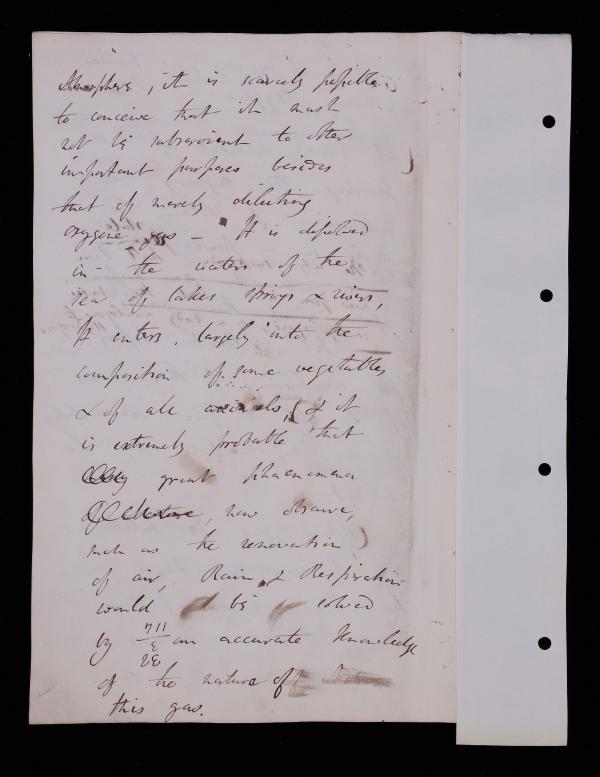 Atmosphere, it is scarcely possible
to conceive that it must
not be subservient to other
important purposes besides
that of merely diluting
oxygene gas – It is dissolved
in the waters of the
sea of lakes springs & rivers,
It enters, largely into the
composition of some vegetables
& of all animals, & it
is extremely probable that
many great phaenomena
of Nature, now obscure,
such as the renovation
of air, Rain & Respiration
would be solved
by an accurate knowledge
of the nature of
this gas.